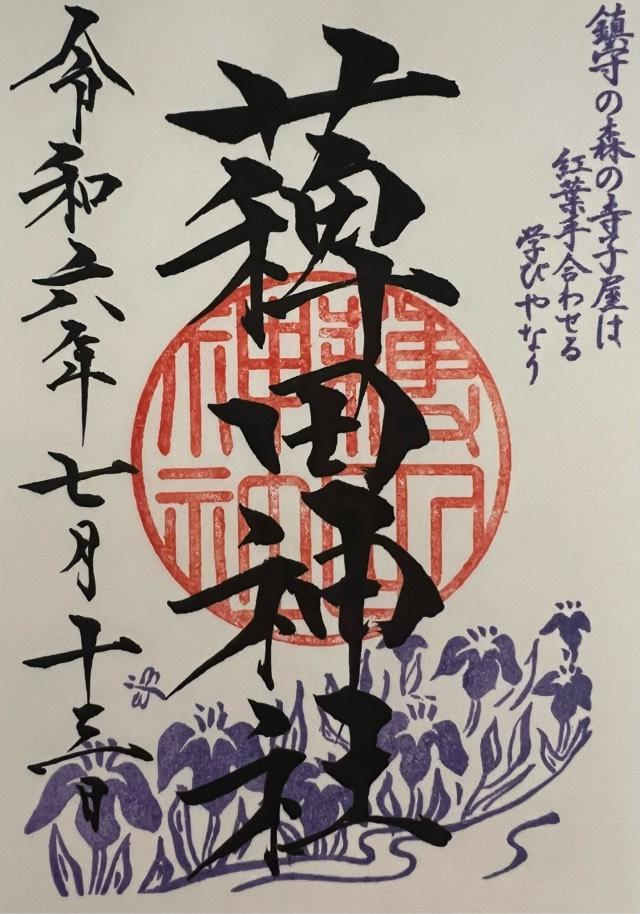 鎮守の森の寺子屋は
紅葉手合わせる
学びやなり
薭田神社
令和六年七月十三日